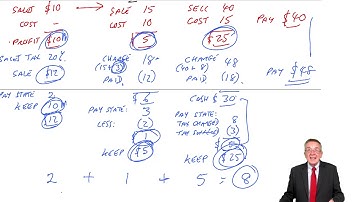 SALES $10 → SALE 15 SELL 40 PAY $40
COST - COST 10 COST 15
PROFIT $10 $5 $25
SALES TAX 20% CHARGE 18 CHARGE 48
SALE $12 (15+3) (40+8) PAY $48
PAID (12) PAID (18)
PAY STATE 2 $6 CASH $30
KEEP 10 PAY STATE: 3 PAY STATE:
$12 LESS: (2) TAX CHARGED 8
1 TAX SUFFERED (3)
KEEP $5 $5
KEEP $25
2 + 1 + 5 = 8